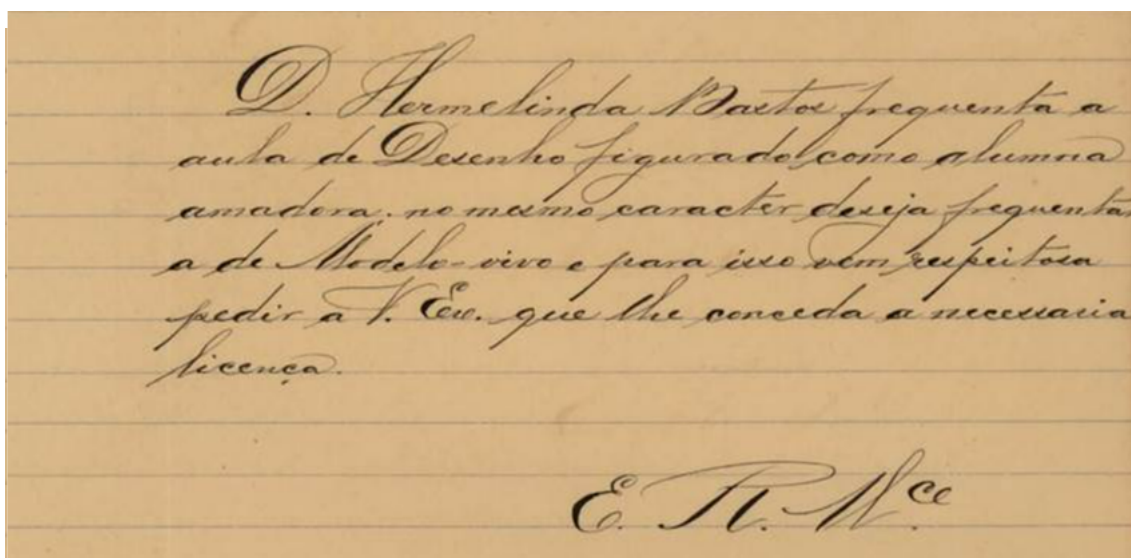 D. Hermelinda Bastos frequenta a
aula de Desenho figurado como alumna
amadora. no mesmo caracter deseja frequentar
a de Modelo-vivo e para isso vem respeitosa
pedir a V. Ex. que lhe conceda a necessaria
licença.
E. R. M.ce